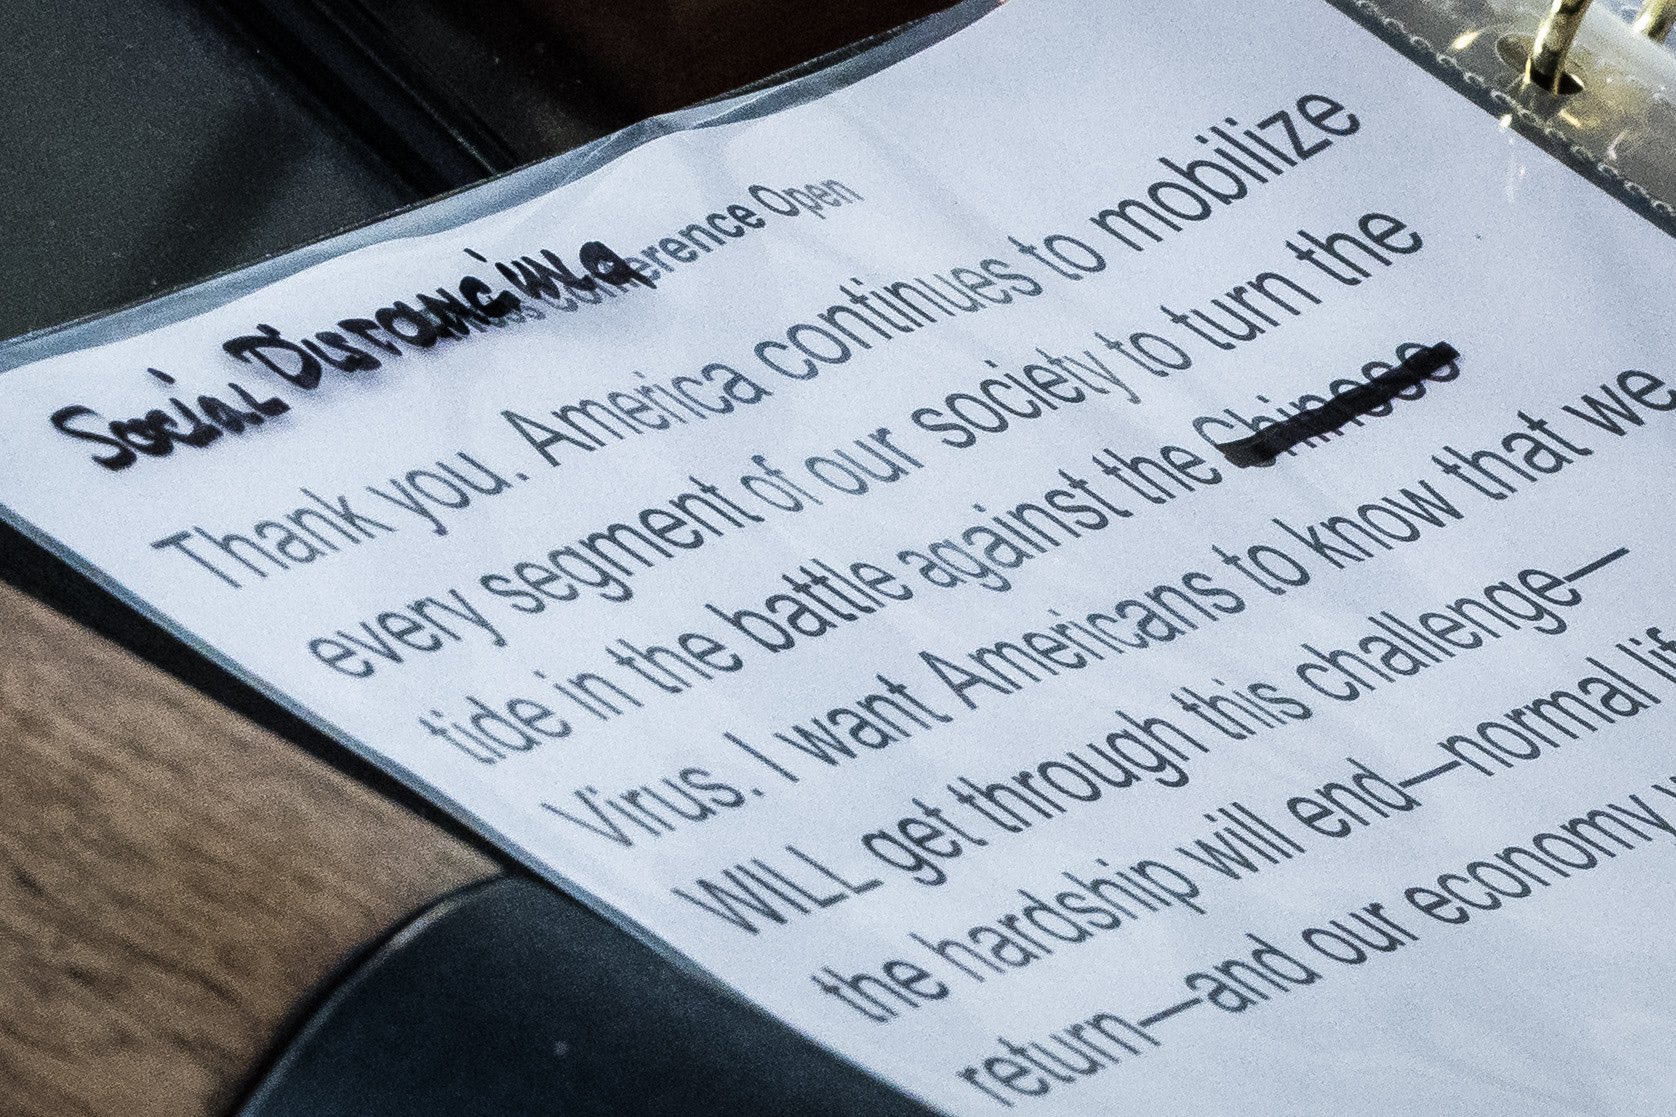 Social Distancing
Conference Open
Thank you. America continues to mobilize
every segment of our society to turn the
tide in the battle against the Chinese
Virus. I want Americans to know that we
WILL get through this challenge—
the hardship will end—normal lif
return—and our economy